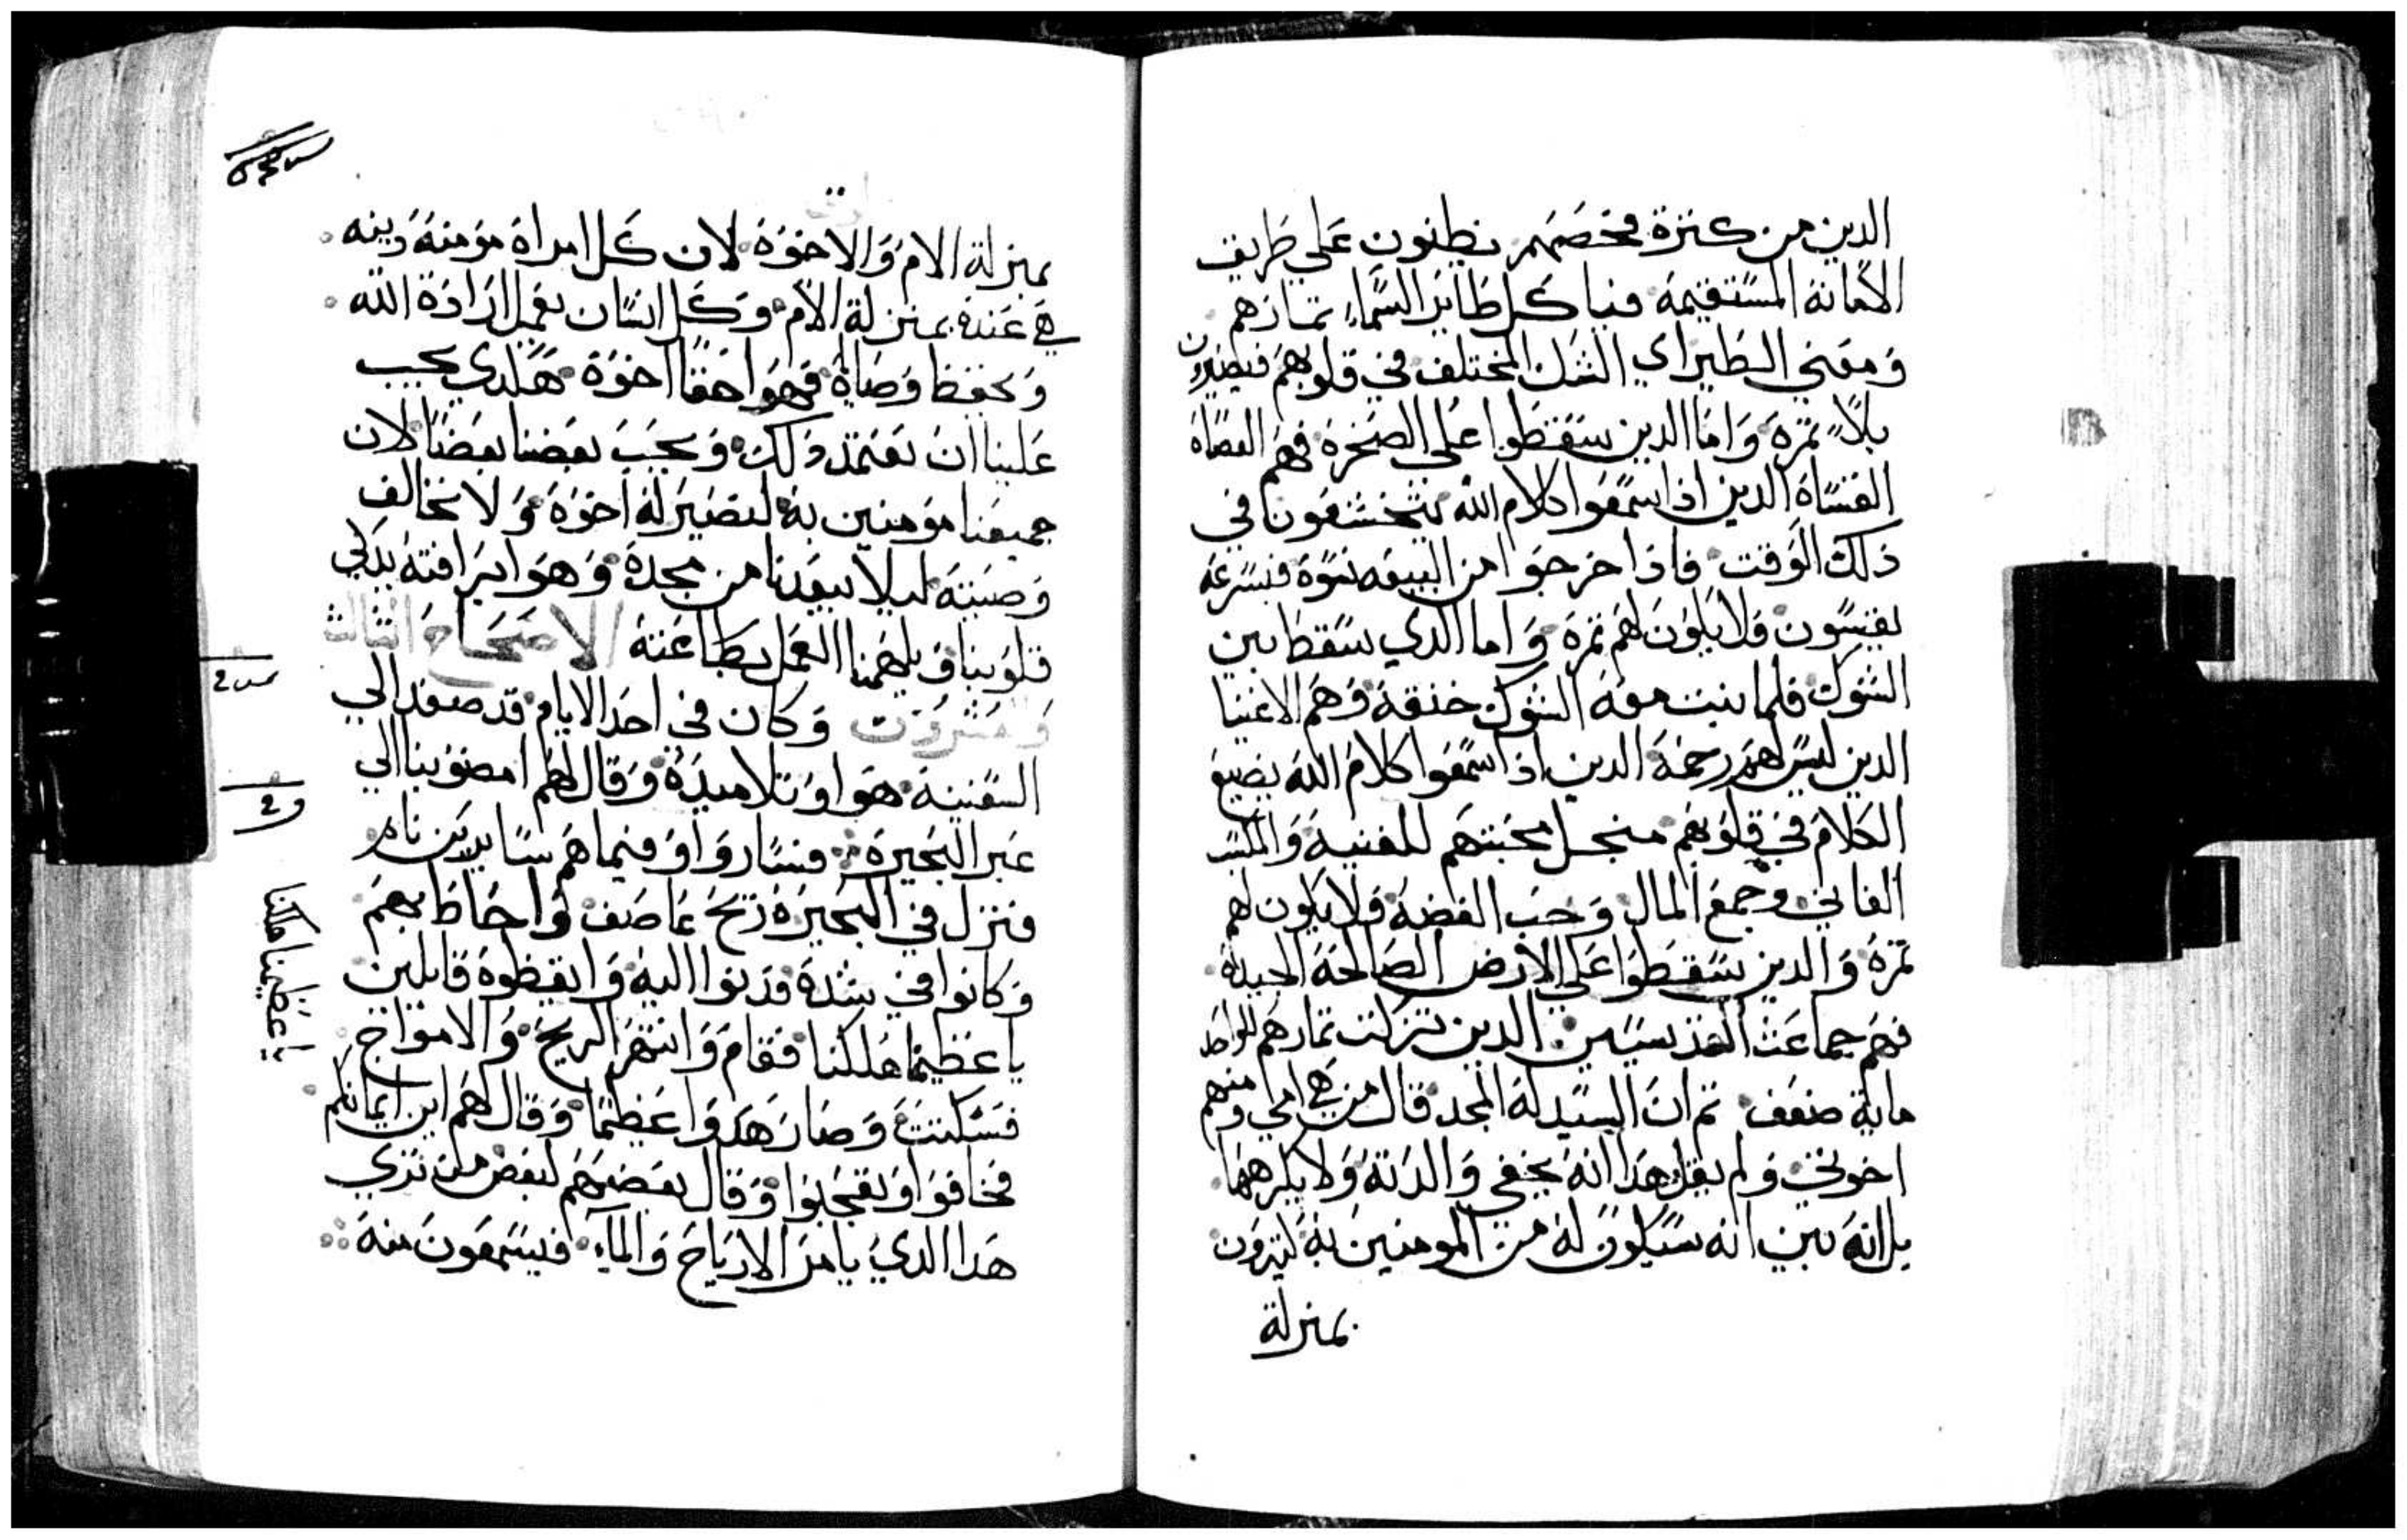 الدين من كتزة فحصهم بظنون على طريق
الامانة المستقيمة فياكل طاير السماء تمارهم
ومعني الطير اي الشك المختلف في قلوبهم فيصيرون
بلا تمرة واما الدين سقطوا على الصخرة فهم العصاة
القساة الدين اذا سمعوا كلام الله يتخشعون في
ذلك الوقت فاذا خرجوا من البيعه فبسرعة
يقيسون فلا يكون لهم تمرة واما الدي سقط بين
الشوك فلما نبت معه الشوك خنقة وهم الاغنيا
الدين ليس لهم رحمة الدين اذا سمعوا كلام الله يضيع
الكلام في قلوبهم منجل محبتهم للقنية والمكسب
الفاني وجمع المال وحب الفضة فلا يكون لهم
تمرة والدين سقطوا على الارض الصالحة الجيدة
فهم جماعت القديسين الدين تزكت تمارهم للواحد
ماية ضعف تم ان السيد له المجد قال من هي امي ومنهم
اخوتي ولم يقل هدا انه يخفي والدتة ولا يكرهها
بل انه بين انه سيكون له من المومنين به ليزون
بمنزلة
بمنزلة الام والاخوة لان كل امراة مؤمنة دينه
هي عندة بمنزلة الام وكل انسان يعمل ارادة الله
ويحفظ وصاياة فهوا حقا اخوة هكدي يجب
علينا ان نعتمد دلك ويجب بعضنا بعضا لان
جميعنا مؤمنين به لنصير له اخوة ولا نخالف
وصيته ليلا يبعدنا من مجدة وهوا برافته يدكي
قلوبنا ويلهمنا العمل بطاعته الاصحاح التالت
وعشرون وكان في احد الايام قد صعد الي
السفينة هوا وتلاميدة وقال لهم امضو بنا الي
عبر البحيرة فساروا وفيما هم سايرين نام
فنزل في البحيرة ريح عاصف واحاط بهم
وكانوا في شدة فدنوا اليه وايقظوة قايلين
يا عظيمنا هلكنا فقام وانتهر الريح والامواج
فسكنت وصار هدوا عظيما وقال لهم اين ايمانكم
فخافوا وتعجبوا وقال بعضهم لبعض من تري
هدا الدي يامر الارياح والماء فيسمعون منه
يا عظيمنا هلكنا